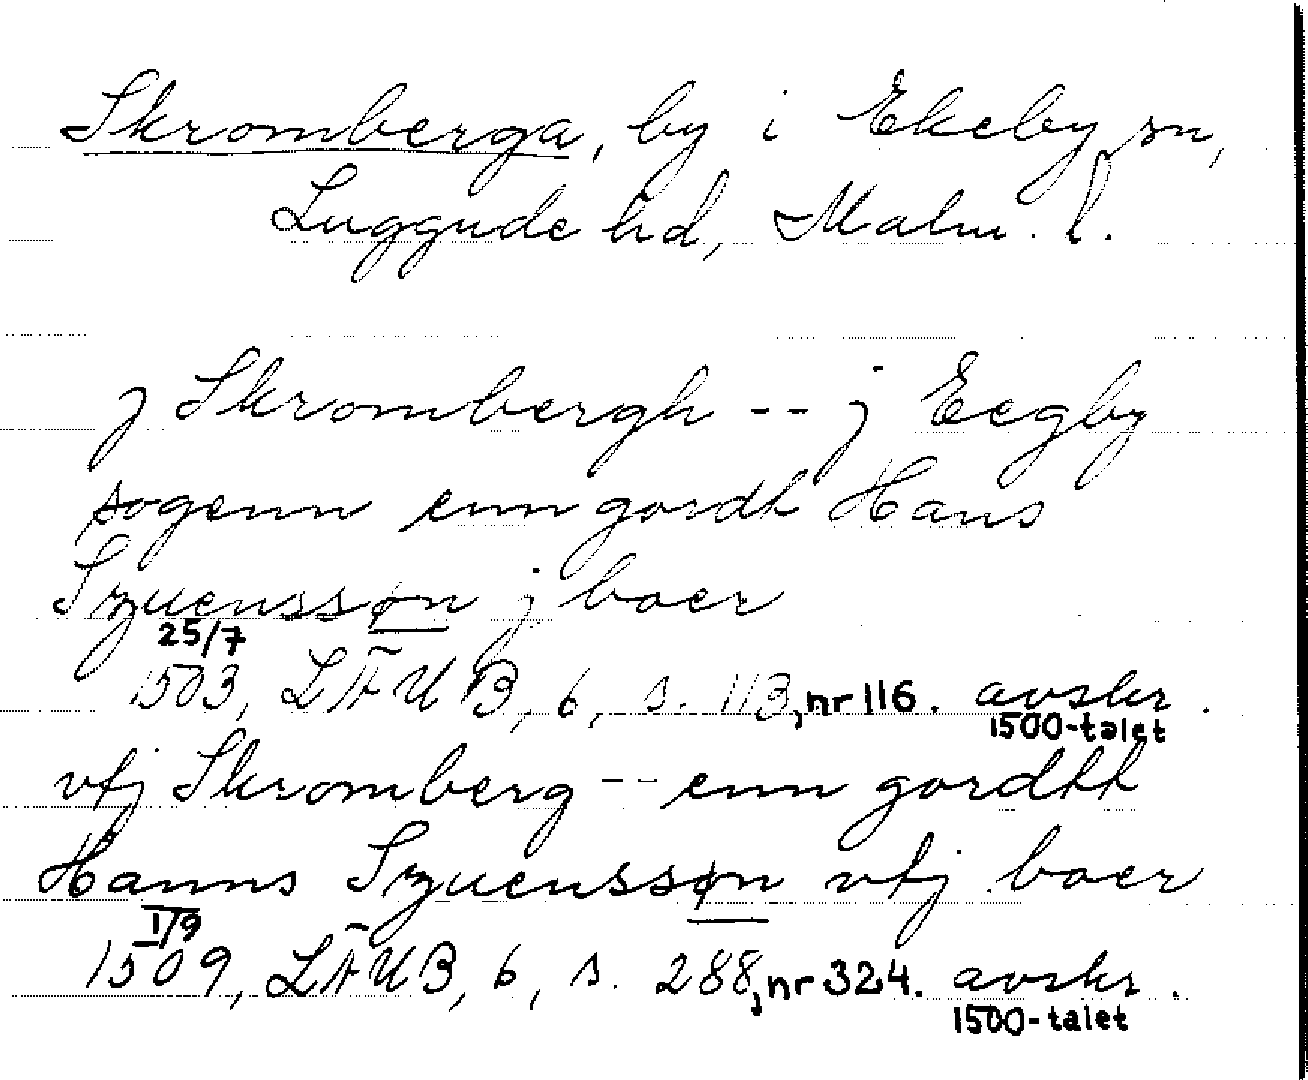 Skromberga, by i Ekeby sn,
Luggude hd, Malm. l.
j Skrombergh -- j Eegby
sogenn enn gordh Hans
Szuenssøn j boer
25/7
1503, LÄUB, 6, s. 113, nr 116. avskr.
1500-talet
vtj Skromberg -- enn gordtt
Hanns Szuenssøn vtj boer
1/9
1509, LÄUB, 6, s. 288, nr 324. avskr.
1500-talet